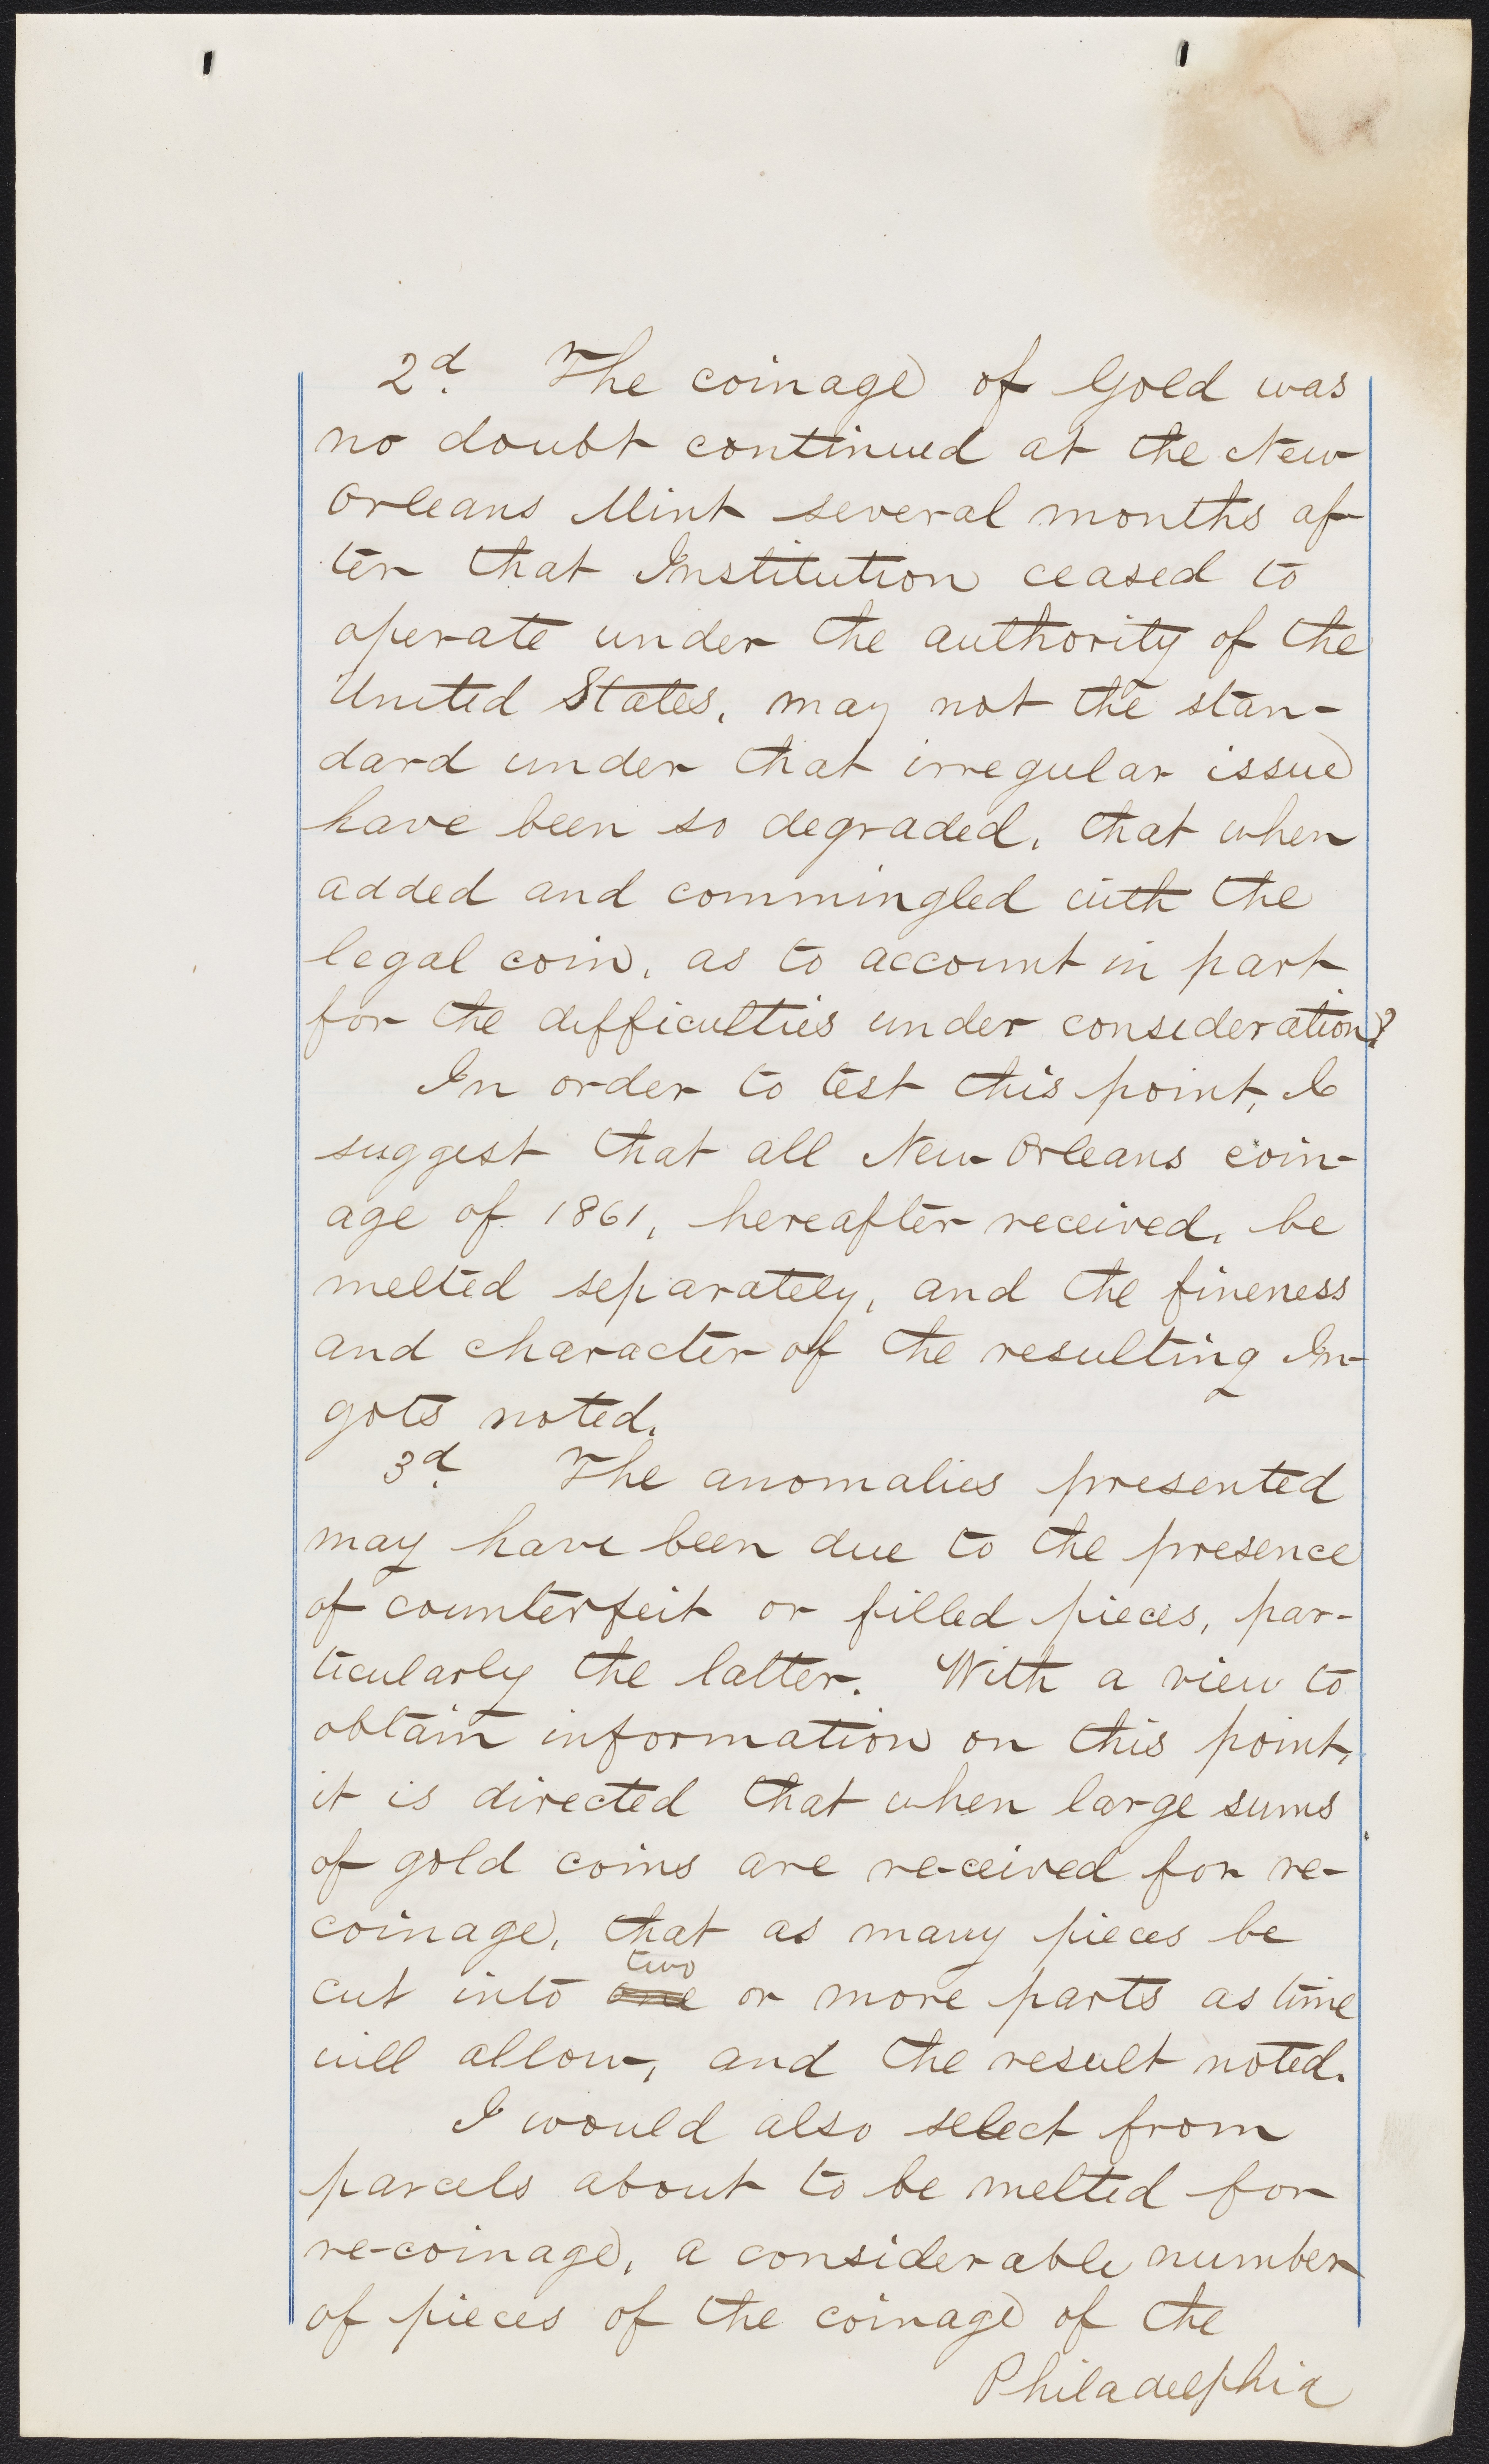 2d. The coinage of Gold was
no doubt continued at the New
Orleans Mint several months af-
ter that Institution ceased to
operate under the authority of the
United States, may not the stan-
dard under that irregular issue
have been so degraded, that when
added and commingled with the
legal coin, as to account in part
for the difficulties under consideration?
In order to test this point, I
suggest that all New Orleans coin-
age of 1861, hereafter received, be
melted separately, and the fineness
and character of the resulting In-
gots noted.
3d. The anomalies presented
may have been due to the presence
of counterfeit or filled pieces, par-
ticularly the latter. With a view to
obtain information on this point,
it is directed that when large sums
of gold coins are re-ceived for re-
coinage, that as many pieces be
two
cut into one or more parts as time
will allow, and the result noted.
I would also select from
parcels about to be melted for
re-coinage, a considerable number
of pieces of the coinage of the
Philadelphia